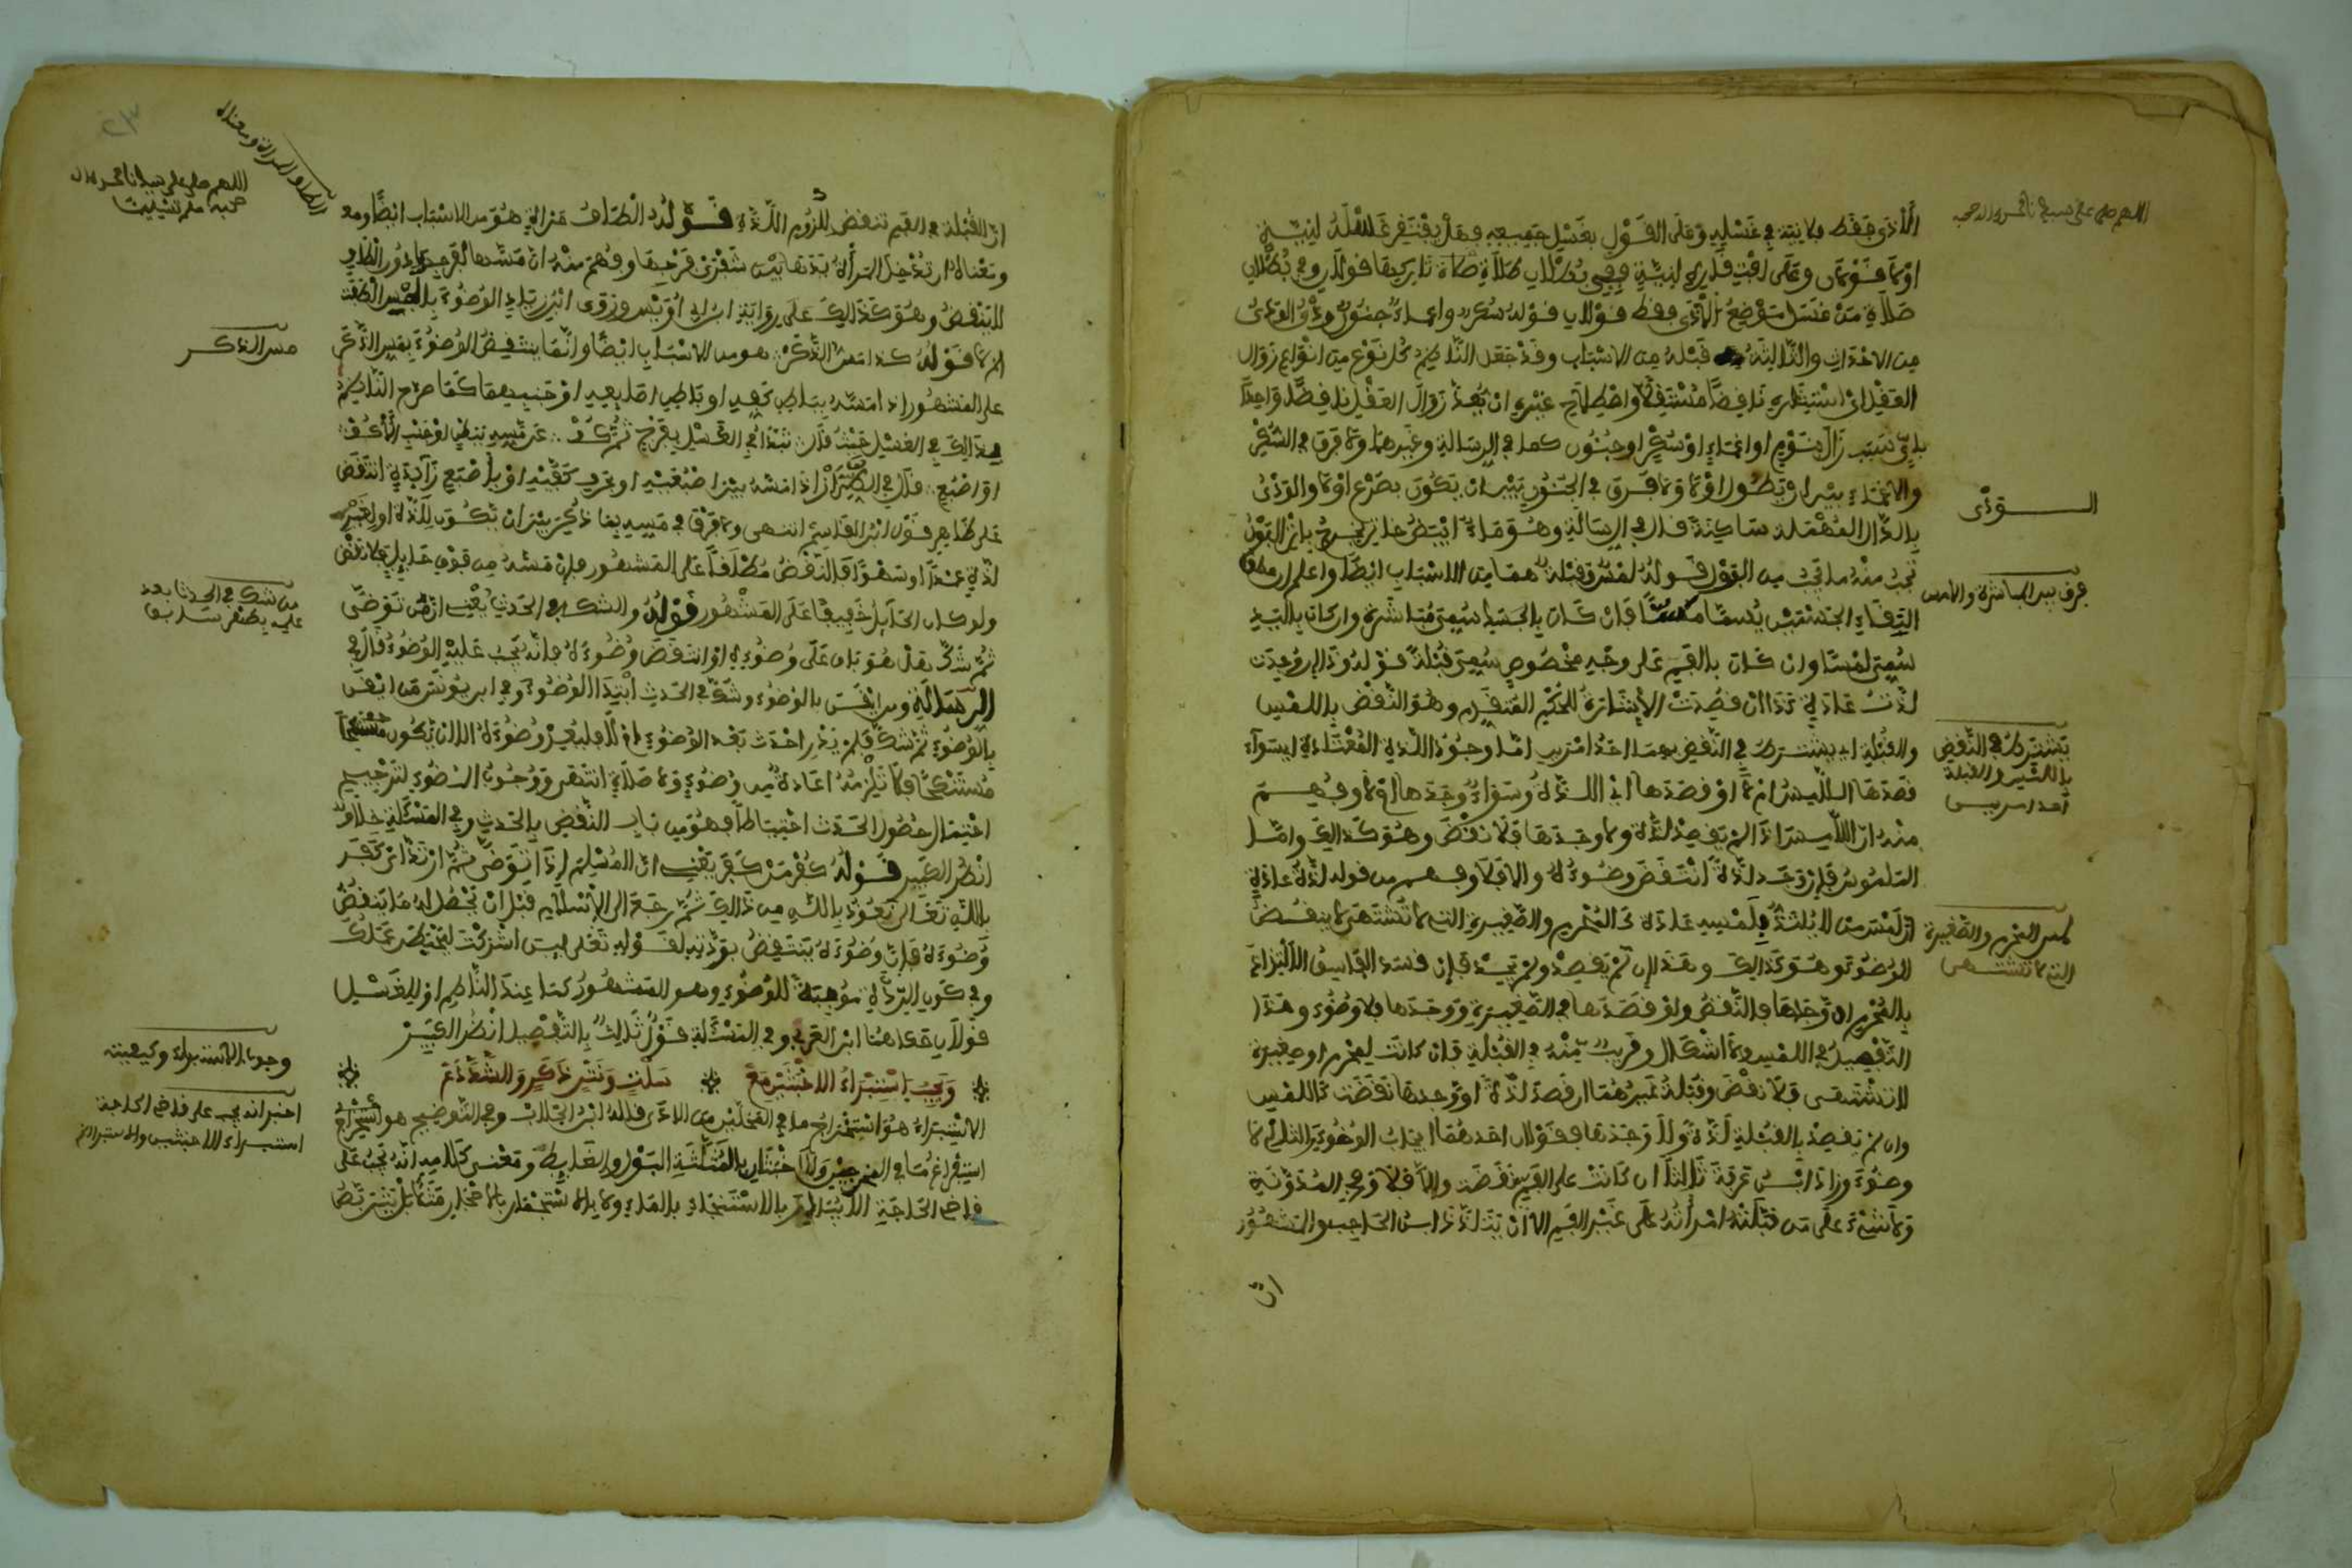 اللهم صل على سيدنا محمد وآله وصحبه
الأذى فقط ولا نية في غسله وعلى القول بغسل جميعه فهل يفتقر غسله لنية
أو لا قولان وعلى افتقاره لنية ففي بطلان صلاة تاركها قولان وفي بطلان
صلاة من غسل موضع الأذى فقط قولان قوله سكر واغماء جنون ودي الودي
من الاحداث والثلاثة قبله من الاسباب وقد جعل الناظم كل نوع من انواع زوال
العقل
سبب زال بنوم او اغماء او سكر او جنون كما في الرسالة وغيرهما ولا فرق في السكر
والاغماء بين ان يطول او لا ولا فرق في الجنون بين ان يكون بصرع او لا والودي
بالدال المهملة ساكنة قال في الرسالة وهو ماء ابيض خاثر يخرج باثر البول
يجب منه ما يجب من البول قوله لمس وقبلة هما من الاسباب ايضا واعلم ان مطلق
التقاء الجسمين يسمى مسا فان كان بالجسد سمي مباشرة وان كان باليد
سمي لمسا وان كان بالفم على وجه مخصوص سمي قبلة قوله وذا ان وجدت
لذة عادة كذا ان قصدت الإشارة للحكم المتقدم وهو النقض باللمس
والقبلة اي يشترط في النقض بهما احد امرين اما وجود اللذة المعتادة اي سواء
قصدها اللامس ام لا او قصدها اي اللذة وسواء وجدها ام لا وفهم
منه ان اللامس اذا لم يقصد لذة ولا وجدها فلا نقض وهو كذالك واما
الملموس فإن وجد لذة انتقض وضوءه والا فلا وفهم من قوله لذة عادة
ان لمس من لا يلتذ بلمسه عادة كالمحرم والصغيرة التي لا تشتهى لا ينقض
الوضوء وهو كذالك وهذا ان لم يقصد ولم يجد فإن قصد الفاسق الالتذاذ
بالمحرم او وجدها فالنقض ولو قصدها في الصغيرة ووجدها فلا وضوء وهذا
التفصيل في اللمس ولا اشكال وقريب منه في القبلة فإن كانت لمحرم او صغيرة
لا تشتهى فلا نقض وقبلة غيرهما ان قصد لذة او وجدها نقضت كاللمس
وان لم يقصد بالقبلة لذة ولا وجدها فقولان احدهما ايجاب الوضوء والثاني لا
وضوء وزاد ابن عرفة ثالثا ان كانت على الفم نقضت وإلا فلا وفي المدونة
ولا شيء على من قبلته امرأته على غير الفم الا ان يلتذ ابن الحاجب والمشهور
ان
الودي
فرق بين المباشرة واللمس
يشترط في النقض
باللمس والقبلة
أحد امرين
لمس المحرم والصغيرة
التي لا تشتهى
اللهم صل على سيدنا محمد وآله
وصحبه وسلم تسليما
الطاف المرأة ومعناه
ان القبلة في الفم تنقض للزوم اللذة قوله الطاف مرأة هو من الاسباب ايضا
ومعناه ان تدخل المرأة يدها بين شفري فرجها وفهم منه ان مسها لفرجها دون الطاف
لا ينقض وهو كذالك على رواية ابن ابي أويس وروى ابن زياد الوضوء
ام لا قوله كذا مس الذكر هو من الاسباب ايضا وانما ينتقض الوضوء بمس الذكر
على المشهور اذا مسه بباطن كفه او باطن اصابعه او جنبيهما كما صرح الناظم
بذالك في الغسل حيث قال تبدأ في الغسل بفرج ثم كف عن مسه ببطن او جنب الأكف
او اصبع قال في الطراز اذا مسه بين اصبعيه او بحرف كفيه او بأصبع زائدة انتقض
على ظاهر قول ابن القاسم انتهى ولا فرق في مسه بما ذكر بين ان يكون للذة او لغير
لذة عمدا او سهوا فالنقض مطلقا على المشهور فإن مسه من فوق حائل فلا نقض
ولو كان الحائل خفيفا على المشهور قوله والشك في الحدث يعني ان من توضى
ثم شك هل هو باق على وضوءه او انتقض وضوءه فإنه يجب عليه الوضوء قال في
الرسالة ومن ايقن بالوضوء وشك في الحدث ابتدأ الوضوء وفي ابن يونس من ايقن
بالوضوء ثم شك فلم يدر احدث بعد الوضوء ام لا فليعد وضوءه الا ان يكون مستنكحا
مستنكحا فلا يلزمه اعادة من وضوء ولا صلاة انتهى ووجوب الوضوء لترجيح
احتمال حصول الحدث احتياطا فهو من باب النقض بالحدث وفي المسئلة خلاف
انظر الكبير قوله كفر من كفر يعني ان المسلم إذا توضى ثم ارتد اي كفر
بالله تعالى نعوذ بالله من ذالك ثم رجع الى الإسلام قبل ان يحصل له ما ينقض
وضوءه فإن وضوءه ينتقض بردته لقوله تعالى لئن اشركت ليحبطن عملك
وفي كون الردة موجبة للوضوء وهو المشهور كما عند الناظم او للغسل
قولان حكاهما ابن العربي وفي المسئلة قول ثالث بالتفصيل انظر الكبير
ويجب استبراء الاخبثين مع سلت ونتر ذكر والشد دع
الاستبراء هو استخراج ما في المحلين من الاذى قاله ابن الجلاب وفي التوضيح هو استخراج
استفراغ ما في المخرجين والاخبثان بالمثلثة البول والغايط ومعنى كلامه انه يجب على
قاضي الحاجة
مس الذكر
من شك في الحدث بعد
وجوب الاستبراء وكيفيته
اخبر انه يجب على قاضي الحاجة
استبراء الاخبثين والاستبراء